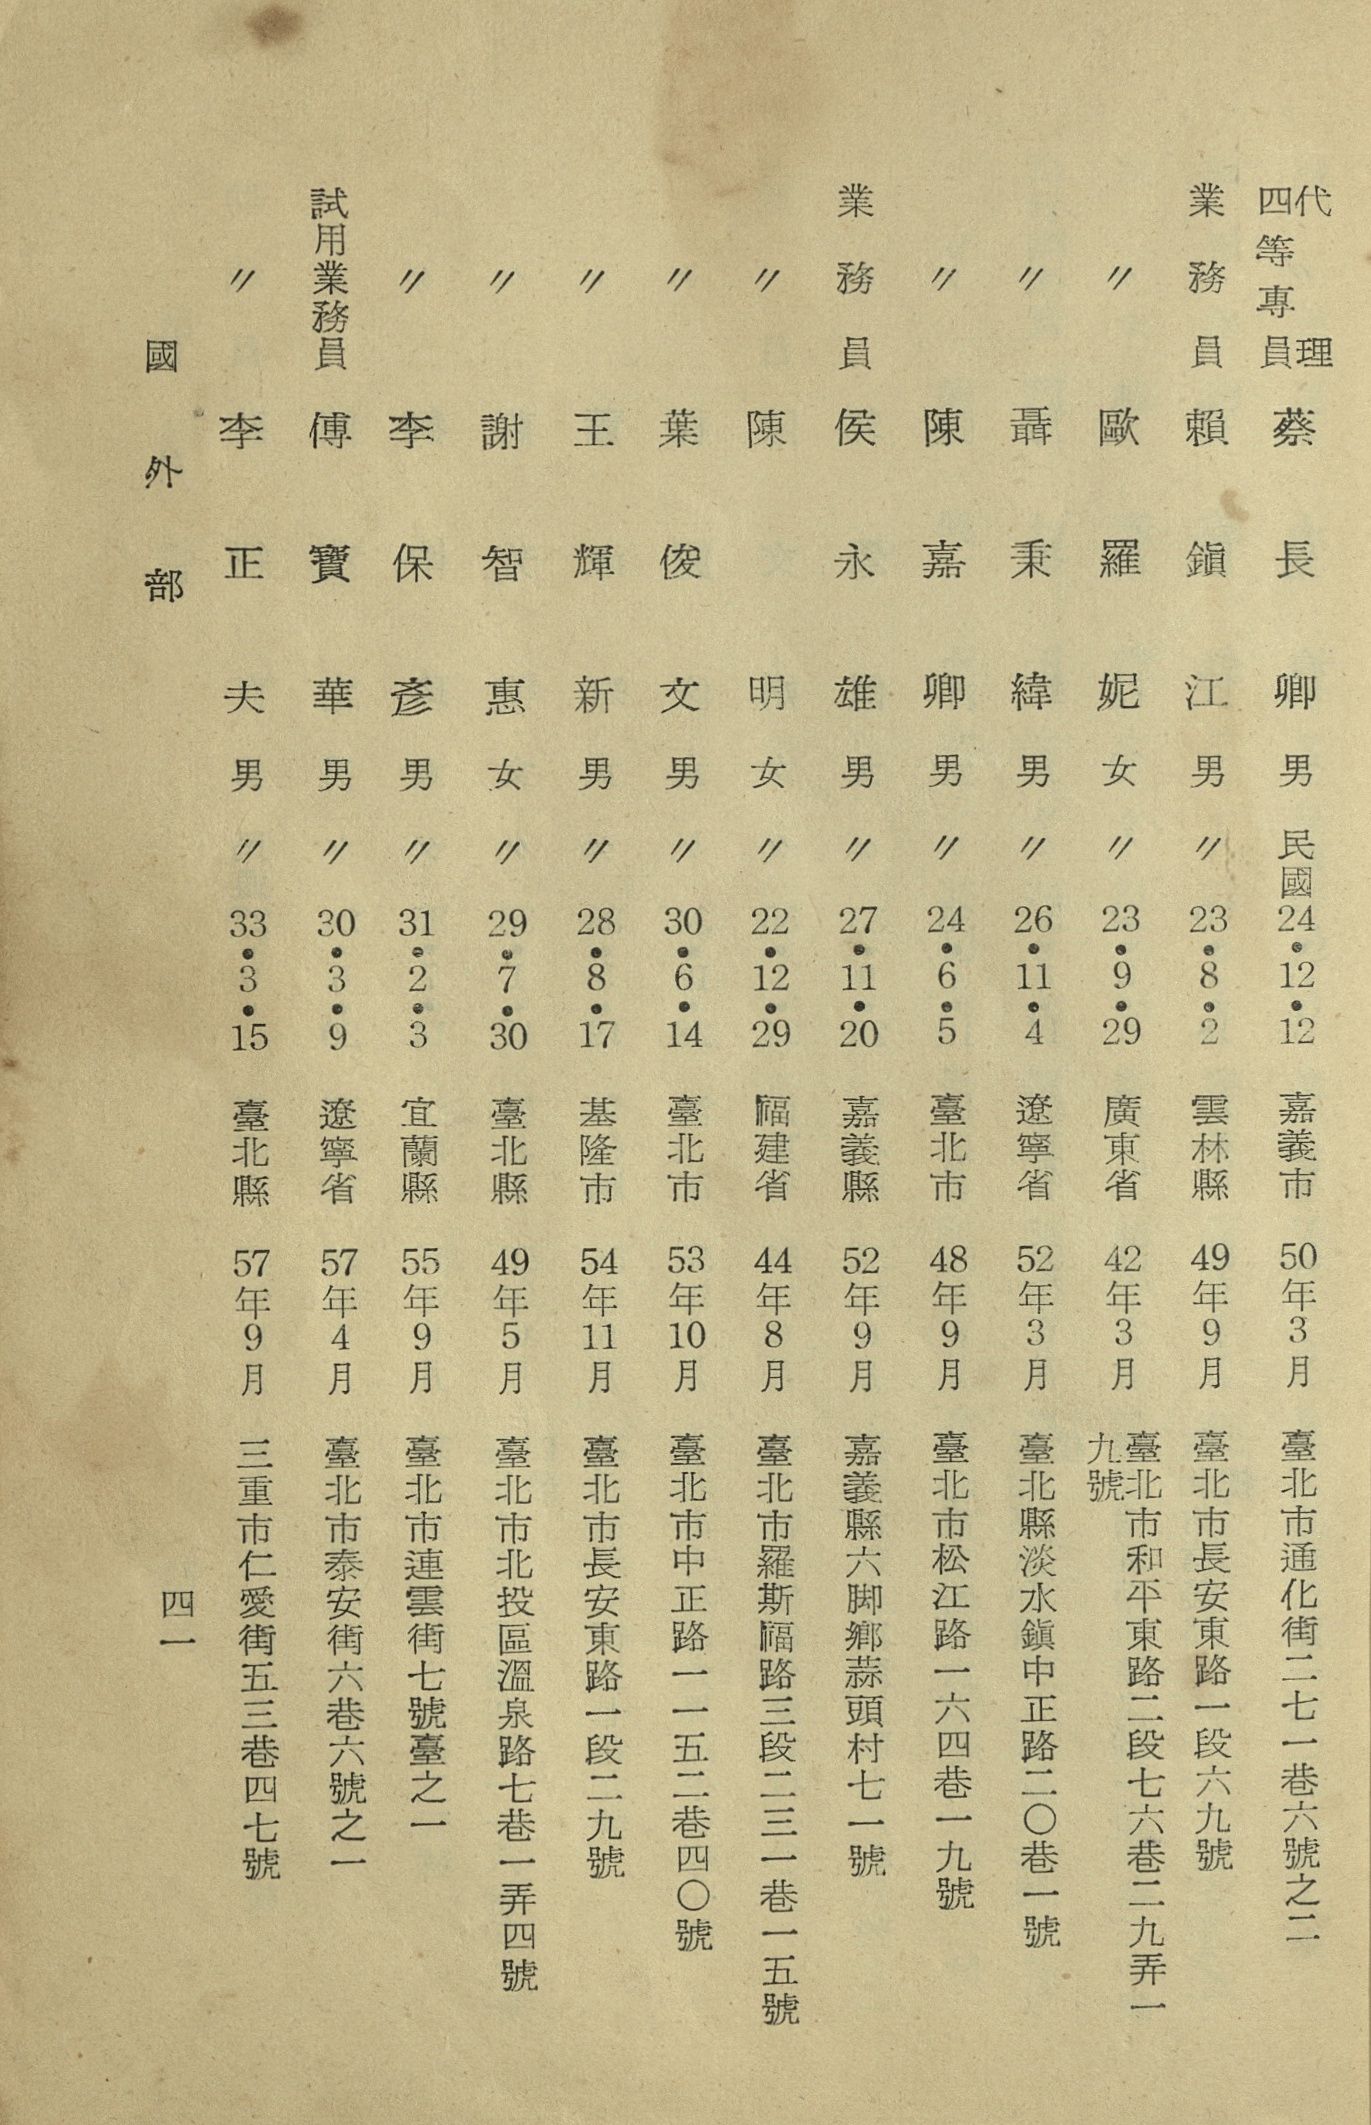 代理
四等專員 蔡長卿 男 民國24•12•12 嘉義市 50年3月 臺北市通化街二七一巷六號之二
業務員 賴鎭江 男 〃 23•8•2 雲林縣 49年9月 臺北市長安東路一段六九號
〃 歐羅妮 女 〃 23•9•29 廣東省 42年3月 臺北市和平東路二段七六巷二九弄一
九號
〃 聶秉緯 男 〃 26•11•4 遼寧省 52年3月 臺北縣淡水鎭中正路二〇巷一號
〃 陳嘉卿 男 〃 24•6•5 臺北市 48年9月 臺北市松江路一六四巷一九號
業務員 侯永雄 男 〃 27•11•20 嘉義縣 52年9月 嘉義縣六脚鄉蒜頭村七一號
〃 陳明 女 〃 22•12•29 福建省 44年8月 臺北市羅斯福路三段二三一巷一五號
〃 葉俊文 男 〃 30•6•14 臺北市 53年10月 臺北市中正路一一五二巷四〇號
〃 王輝新 男 〃 28•8•17 基隆市 54年11月 臺北市長安東路一段二九號
〃 謝智惠 女 〃 29•7•30 臺北縣 49年5月 臺北市北投區溫泉路七巷一弄四號
〃 李保彥 男 〃 31•2•3 宜蘭縣 55年9月 臺北市連雲街七號臺之一
試用業務員 傅寶華 男 〃 30•3•9 遼寧省 57年4月 臺北市泰安街六巷六號之一
〃 李正夫 男 〃 33•3•15 臺北縣 57年9月 三重市仁愛街五三巷四七號
國外部 四一